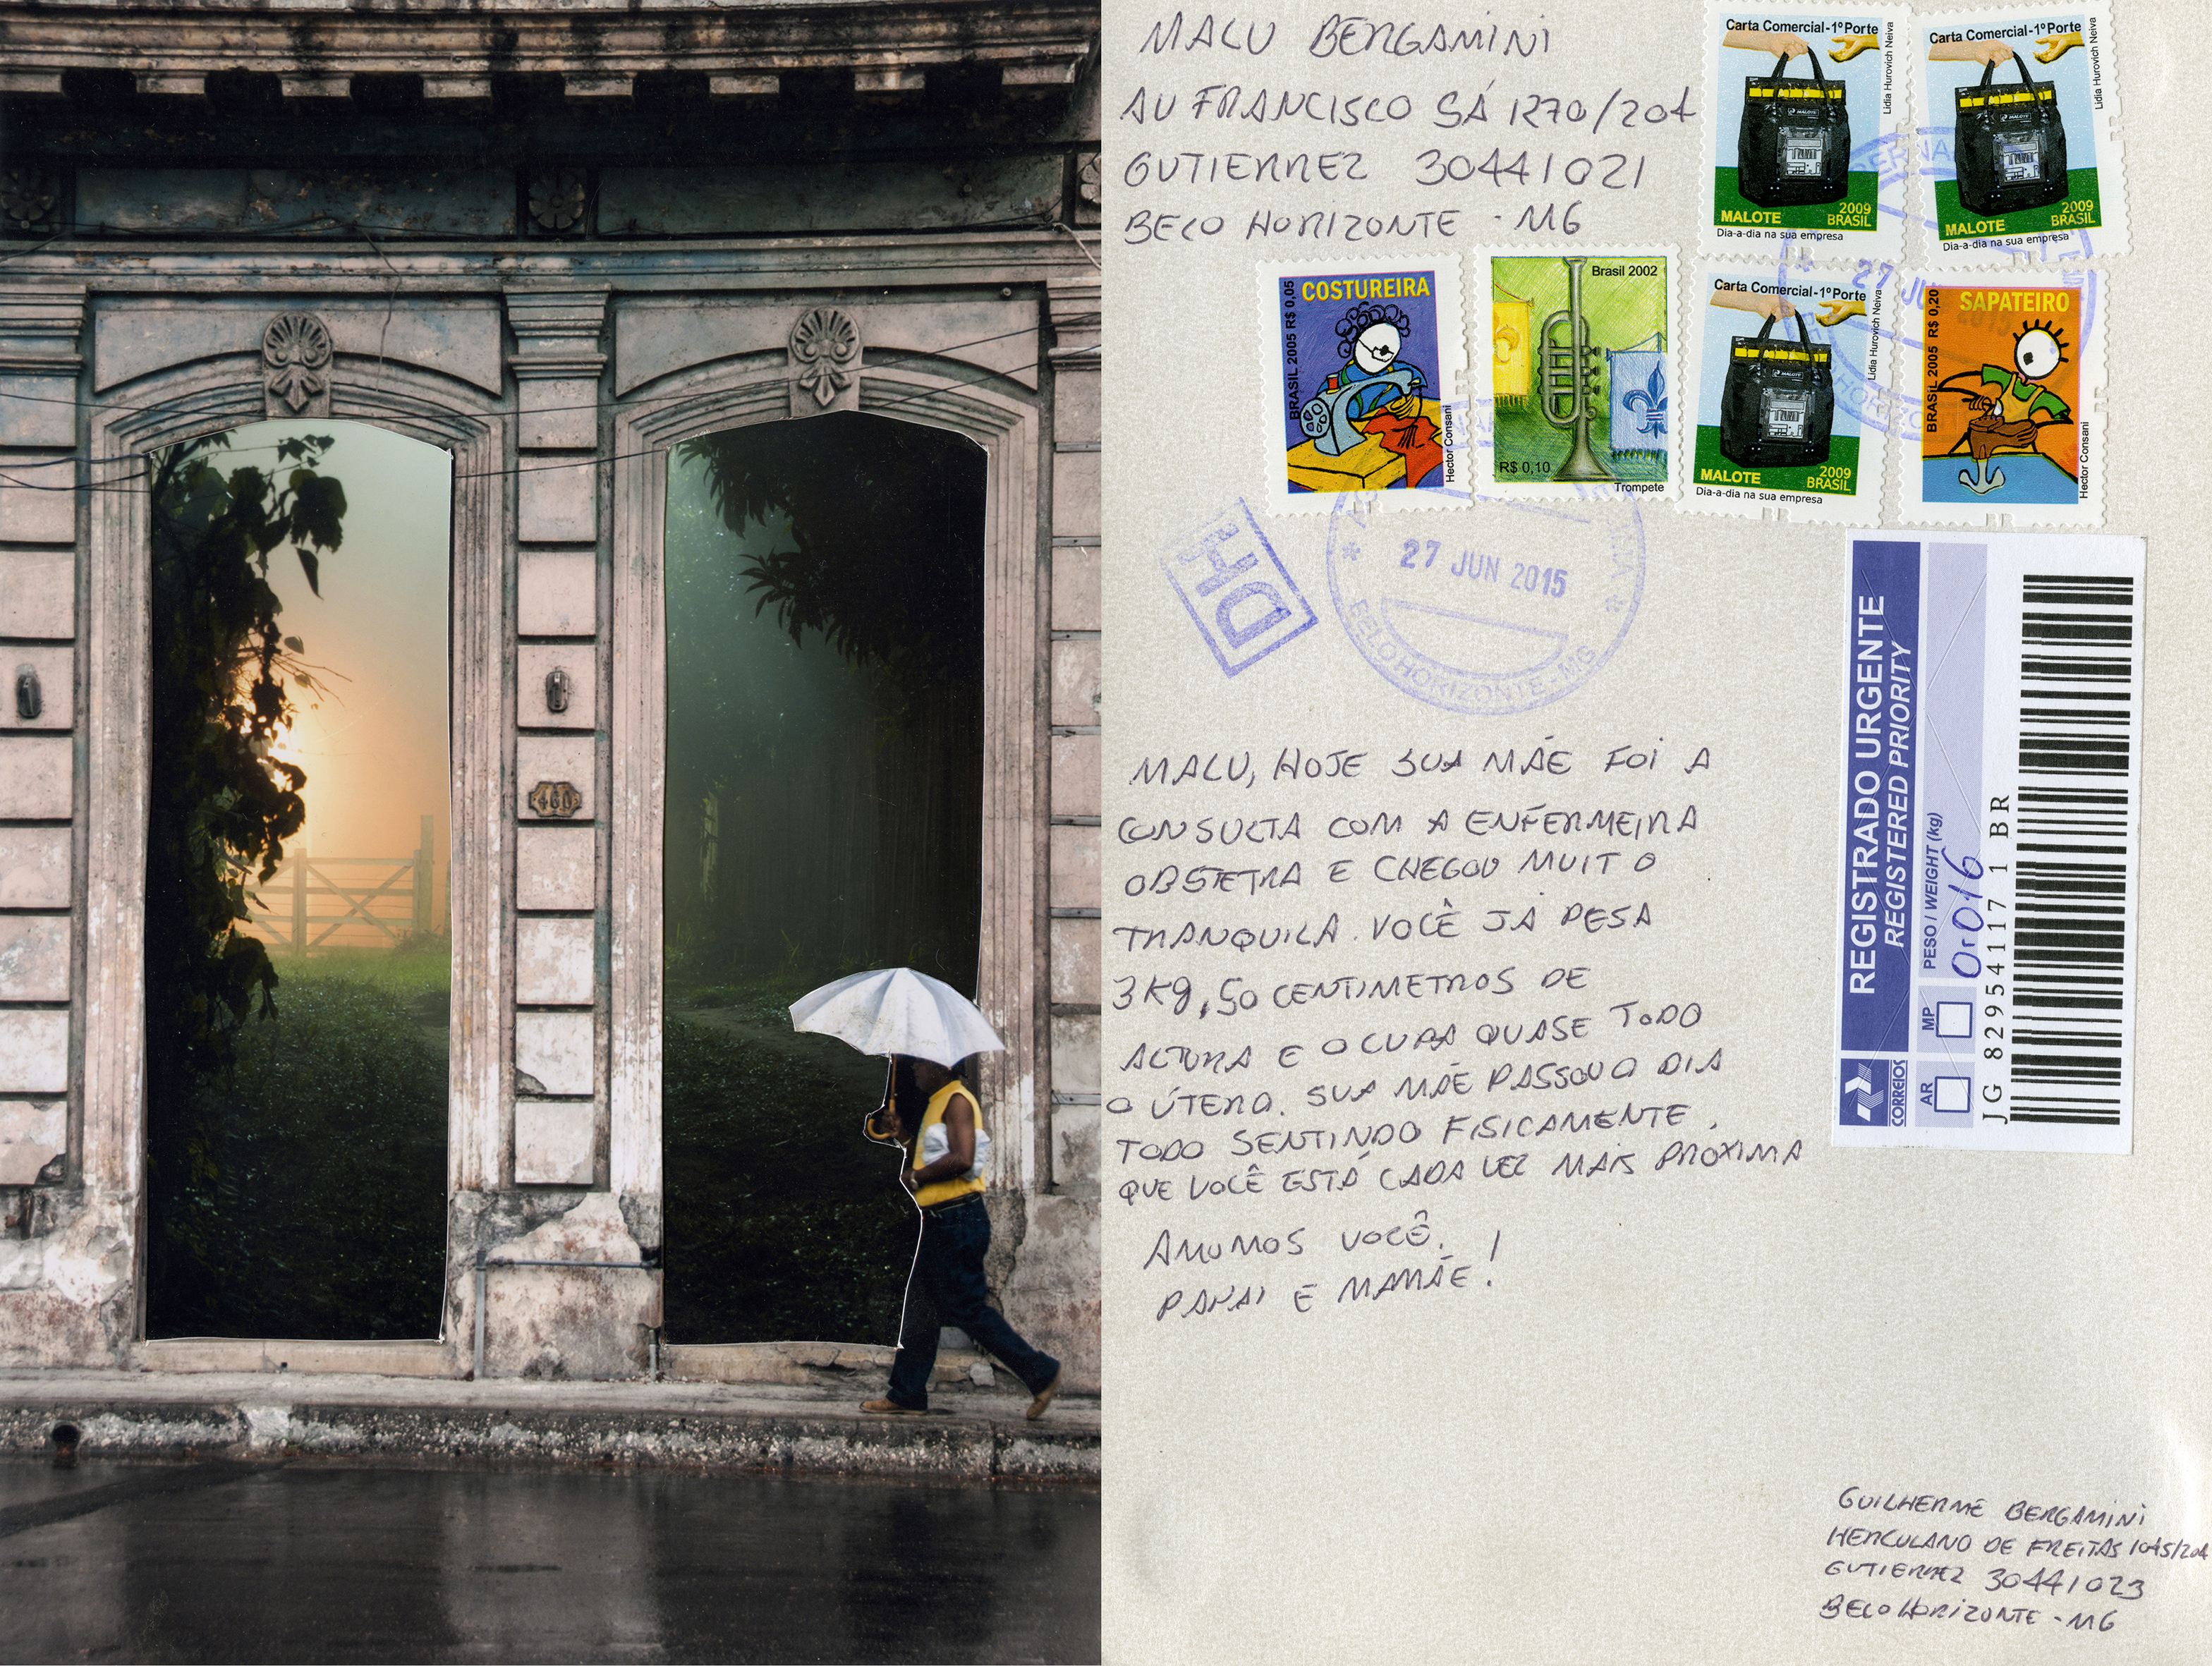 460
MALU BERGAMINI
AV FRANCISCO SÁ 1270/204
GUTIERREZ 30441021
BELO HORIZONTE - MG
Carta Comercial-1º Porte
Lidia Hurovich Neiva
MALOTE
MALOTE
2009
BRASIL
Dia-a-dia na sua empresa
Carta Comercial-1º Porte
Lidia Hurovich Neiva
MALOTE
MALOTE
2009
BRASIL
Dia-a-dia na sua empresa
COSTUREIRA
BRASIL 2005 R$ 0,05
Hector Consani
Brasil 2002
R$ 0,10
Trompete
Carta Comercial-1º Porte
Lidia Hurovich Neiva
MALOTE
MALOTE
2009
BRASIL
Dia-a-dia na sua empresa
SAPATEIRO
BRASIL 2005 R$ 0,20
Hector Consani
27 JU
DH
27 JUN 2015
BELO HORIZONTE - MG
REGISTRADO URGENTE
REGISTERED PRIORITY
PESO / WEIGHT (kg)
0,016
AR
MP
CORREIOS
JG 82954117 1 BR
MALU, HOJE SUA MÃE FOI A
CONSULTA COM A ENFERMEIRA
OBSTETRA E CHEGOU MUITO
TRANQUILA. VOCÊ JÁ PESA
3 Kg, 50 CENTIMETROS DE
ALTURA E OCUPA QUASE TODO
O ÚTERO. SUA MÃE PASSOU O DIA
TODO SENTINDO FISICAMENTE
QUE VOCÊ ESTÁ CADA VEZ MAIS PROXIMA
AMAMOS VOCÊ.
PAPAI E MAMÃE!
GUILHERME BERGAMINI
HERCULANO DE FREITAS 1045/204
GUTIERREZ 30441023
BELO HORIZONTE - MG